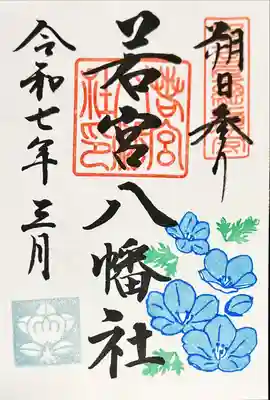 朔日参り
若宮八幡社
令和七年三月